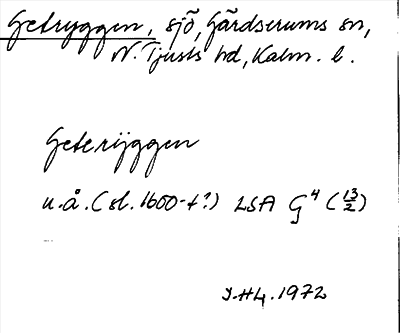 Getryggen, sjö, Gärdserums sn,
N. Tjusts hd, Kalm. l.
Geterÿggen
u.å. (sl. 1600-t?) LSA G⁴ (13/2)
J.H4. 1972